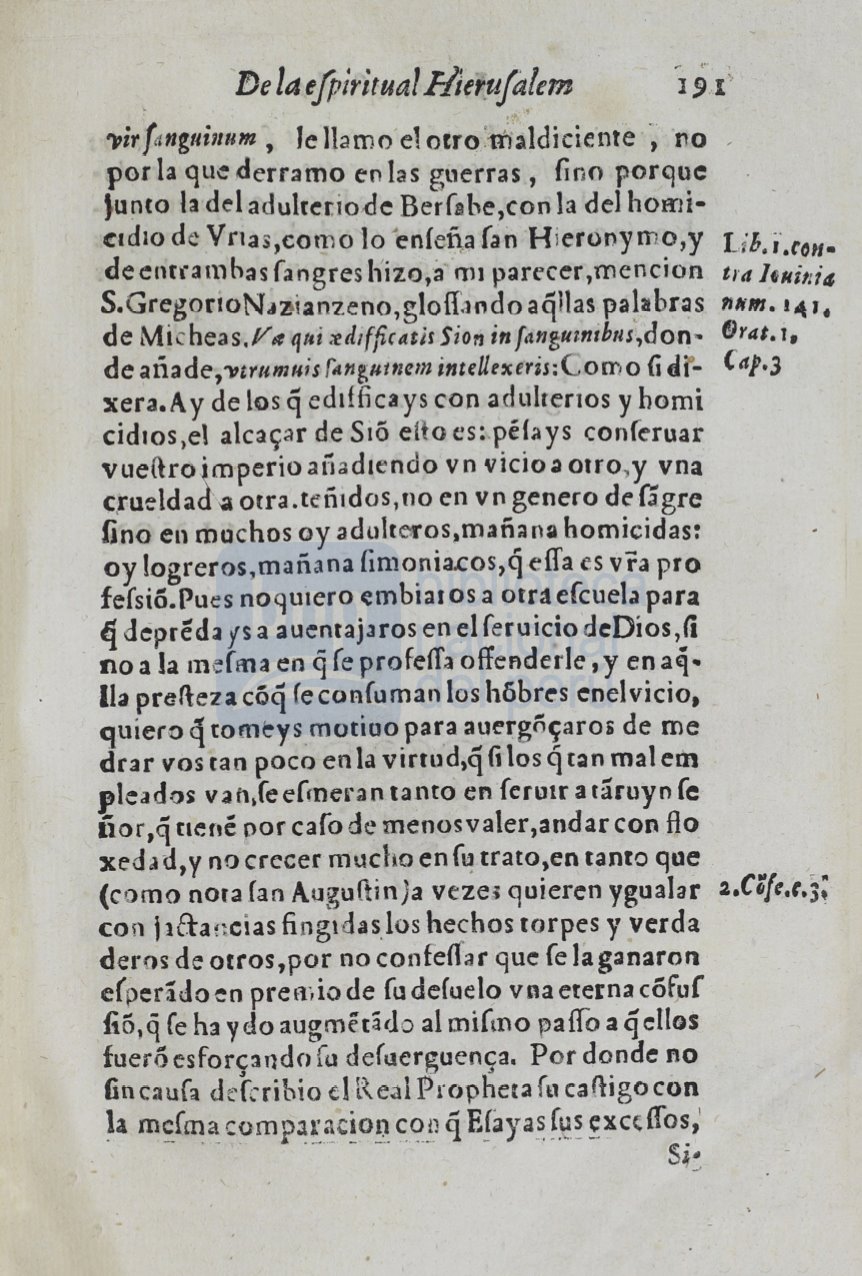 De la eſpiritual Hieruſalem 191
vir ſanguinum, le llamo el otro maldiciente, no
por la que derramo en las guerras, ſino porque
junto la del adulterio de Berſabe, con la del homi-
cidio de Vrias, como lo enſeña ſan Hieronymo, y
de entrambas ſangres hizo, a mi parecer, mencion
S. Gregorio Nazianzeno, gloſſando aq̃llas palabras
de Micheas. Væ qui ædifficatis Sion in ſanguinibus, don-
de añade, vtrumuis ſanguinem intellexeris: Como ſi di-
xera. Ay de los q̃ edifficays con adulterios y homi
cidios, el alcaçar de Siõ eſto es: pẽſays conſeruar
vueſtro imperio añadiendo vn vicio a otro, y vna
crueldad a otra. teñidos, no en vn genero de ſãgre
ſino en muchos oy adulteros, mañana homicidas:
oy logreros, mañana ſimoniacos, q̃ eſſa es vr̃a pro
feſsiõ. Pues no quiero embiaros a otra eſcuela para
q̃ deprẽdays a auentajaros en el ſeruicio de Dios, ſi
no a la meſma en q̃ ſe profeſſa offenderle, y en aq̃-
lla preſteza cõq̃ ſe conſuman los hõbres en el vicio,
quiero q̃ tomeys motiuo para auergõçaros de me
drar vos tan poco en la virtud, q̃ ſi los q̃ tan mal em
pleados van, ſe eſmeran tanto en ſeruir a tã ruyn ſe
ñor, q̃ tienẽ por caſo de menos valer, andar con flo
xedad, y no crecer mucho en ſu trato, en tanto que
(como nota ſan Auguſtin) a vezes quieren ygualar
con jactancias fingidas los hechos torpes y verda
deros de otros, por no confeſſar que ſe la ganaron
eſperãdo en premio de ſu deſuelo vna eterna cõfuſ
ſiõ, q̃ ſe ha ydo augmẽtãdo al miſmo paſſo a q̃ ellos
fuerõ esforçando ſu deſuerguença. Por donde no
ſin cauſa deſcribio el Real Propheta ſu caſtigo con
la meſma comparacion con q̃ Eſayas ſus exceſſos,
Si-
Lib. 1. con-
tra Iouinia
num. 141.
Orat. 1.
Cap. 3
2. Cõfe. c. 3.